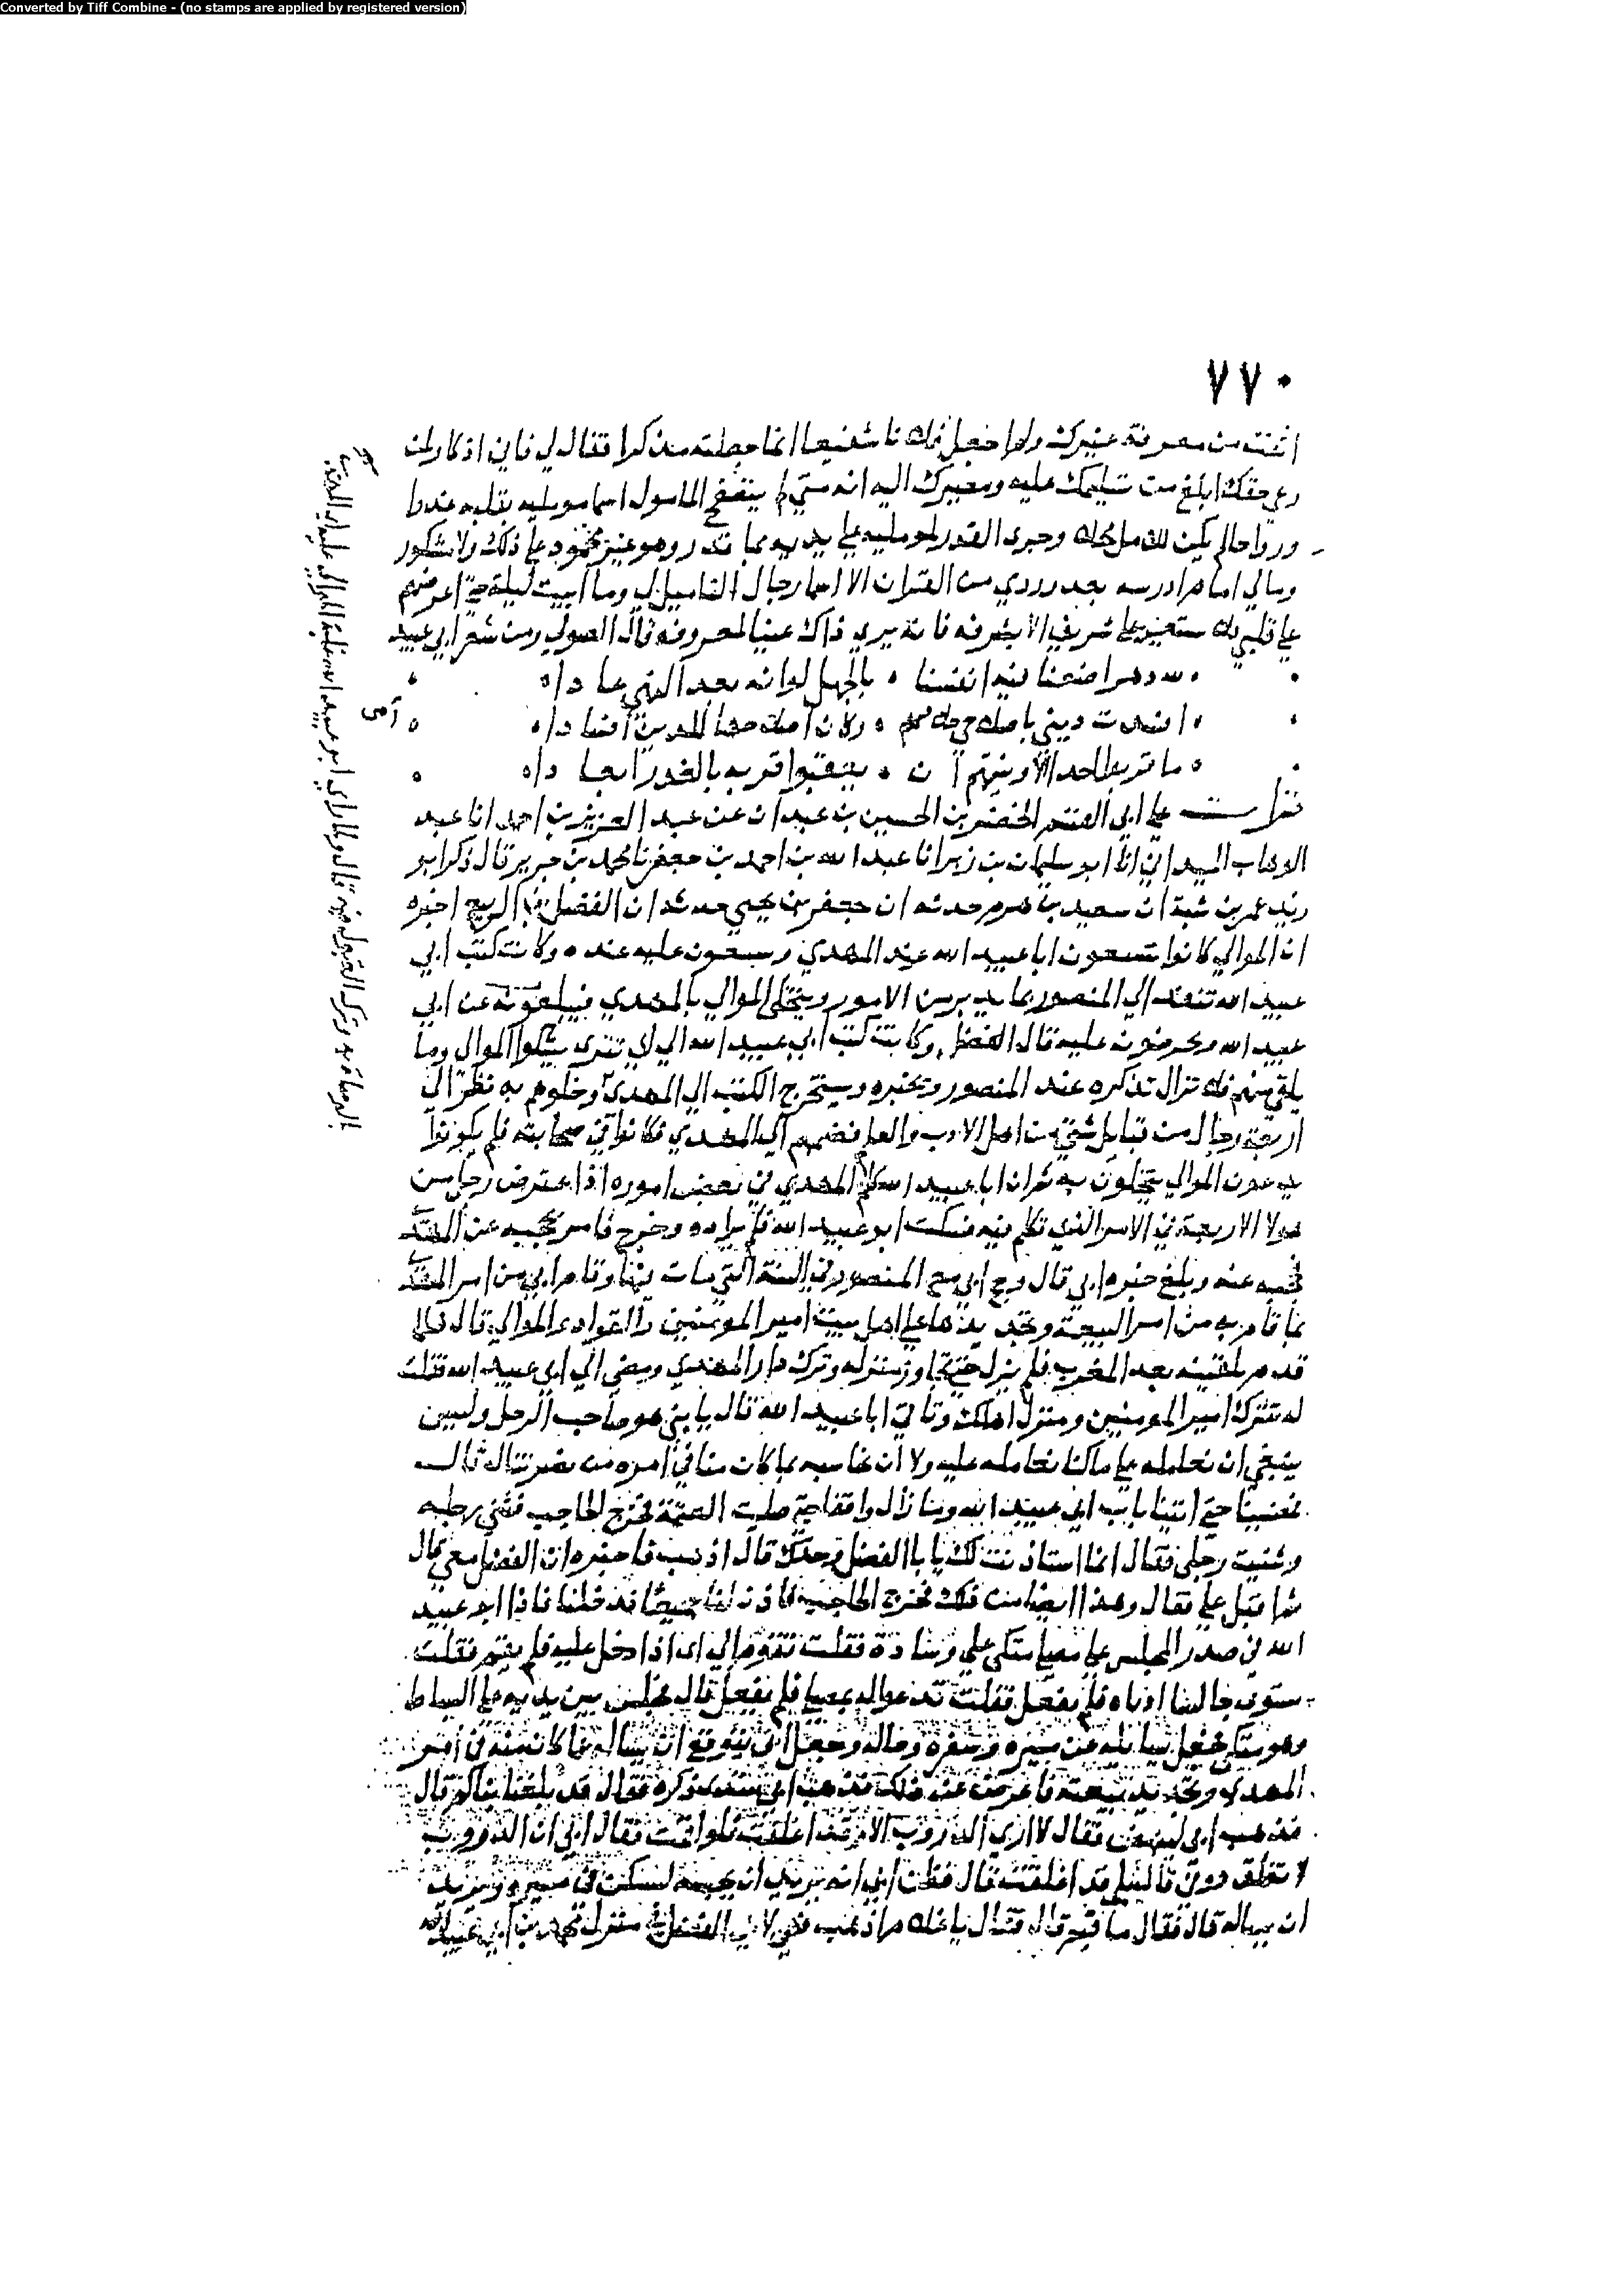 Converted by Tiff Combine - (no stamps are applied by registered version)
٧٧٠
من معرفة غيرك شفيعا انما جعلته مذكرا فقال لي فاي اذكار لمن
رعى حقك ابلغ من تسليمك عليه ومصيرك اليه انه متى لم يتصفح المأمول اسما مومليه بقلبه غدوا
ورواحا لم يكن للامل محلا وجرى القدر لمومليه على يديه بما قدر وهو غير محمود على ذلك ولا مشكور
ومالي امام ادرسه بعد وردي من القران الا اسما رجال التاميل لي وما ابيت ليلة حتى اعرضهم
على قلبي فلا تستعن على شريف الا بشرفه فانه يرى ذاك عيبا لمعروفه قال الصولي ومن شعر ابي عبيد
لله دهر اضعنا فيه انفسنا بالجهل لو انه بعد النهى عادا
افسدت ديني باصلاحي وكان اصلاحها للدين افسادا
ما قربوا احدا الا ونيتهم ان يعقبوا قربه بالغدر ابعادا
على ابي الفتح الخضر بن الحسين بن عبدان عن عبد العزيز بن احمد انا عبد
الوهاب الميداني انا ابو سليمان بن زبر انا عبد الله بن احمد بن جعفر نا محمد بن جرير قال ذكر ابو
زيد عمر بن شبة ان سعيد بن حدثه ان جعفر بن يحيى حدثه ان الفضل بن الربيع اخبره
ان الموالي كانوا يشنعون ابا عبيد الله عند المهدي ويسعون عليه عنده وكانت كتب ابي
عبيد الله تنفذ الى المنصور بما يريد من الامور ويتخلى الموالي بالمهدي فيبلغونه عن ابي
عبيد الله ويحرضونه عليه قال الفضل وكانت كتب ابي عبيد الله الى ابي تترى يشكوا الموالي وما
يلقى منهم فلا تزال تذكره عند المنصور ويخبره ويستخرج الكتب الى المهدي وخلوهم به نظر الى
اربعة رجال من قبايل شتى من اهل الادب والعلم فضمهم الى المهدي فكانوا في صحابته فلم يكونوا
يدعون الموالي يتخلون به ثم ان ابا عبيد الله كلم المهدي في بعض اموره اذ اعترض رجل من
هولا الاربعة في الامر الذي تكلم فيه فسكت ابو عبيد الله فلم يراده وخرج فامر بحجبه عن
فحجبه عنه وبلغ خبره ابي قال وحج ابي مع المنصور في السنة التي مات فيها وقام ابي من امر
بما قام به من امر البيعة وتجديدها على اهل بيت امير المومنين والقواد والموالي قال فلما
قدم لقيته بعد المغرب فلم يزل حتى تجاوز منزله وترك دار المهدي ومضى الى ابي عبيد الله فقلت
له تترك امير المومنين ومنزلك واهلك وتاتي ابا عبيد الله قال يا بني هو صاحب الرجل وليس
ينبغي ان نعامله على ما كنا نعامله عليه ولا ان نحاسبه بما كان منا في امره من قال
فمضينا حتى اتينا باب ابي عبيد الله وما زال واقفا حتى صليت العتمة فخرج الحاجب فثنى رجله
وثنيت رجلي فقال انما استاذنت لك يا ابا الفضل وحدك قال اذهب فاخبره ان الفضل معي قال
ثم اقبل علي فقال وهذا ايضا من ذلك فخرج الحاجب فاذن لنا جميعا فدخلنا فاذا ابو عبيد
الله في صدر المجلس على مصلى متكى على وسادة فقلت يقوم الى ابي اذا دخل عليه فلم يقم فقلت
يستوي جالسا اذا دنا فلم يفعل فقلت يدعوا له بمصلى فلم يفعل قال فجلس بين يديه على البساط
وهو متكى فجعل يسايله عن مسيره وسفره وحاله وجعل ابي يتوقع ان يساله عما كان منه في امر
المهدي وتجديد بيعته فاعرض عن ذلك فذهب ابي يبتدى ذكره فقال قد بلغنا نباكم قال
فذهب ابي لينهض فقال لا ارى الدروب الا وقد اغلقت فلو اقمت فقال ابي ان الدروب
لا تغلق دوني قال بلى قد اغلقت قال فظن ابي انه يريد ان يحبسه ليسكن في مسيره ويريد
ان يساله قال فاقيم قال فقال يا غلام اذهب فهي لابي الفضل في منزل محمد بن ابي عبيد الله